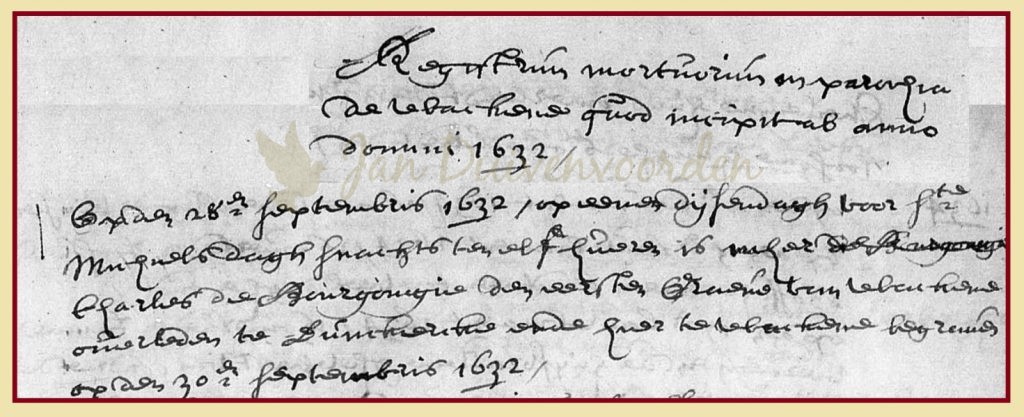 Registrum mortuorum in parochia
de Wackene quod incipit ab anno
domini 1632 /
Jan Duvenvoorden
Op den 28en septembris 1632 / op eenen dijsendagh voor Ste
Michiels dagh snachts ten elf hueren is mher de Bourgongie
Charles de Bourgongie den eersten Graeve van Wackene
overleden te Dunckercke ende hier te Wackene begraven
op den 30en septembris 1632 /